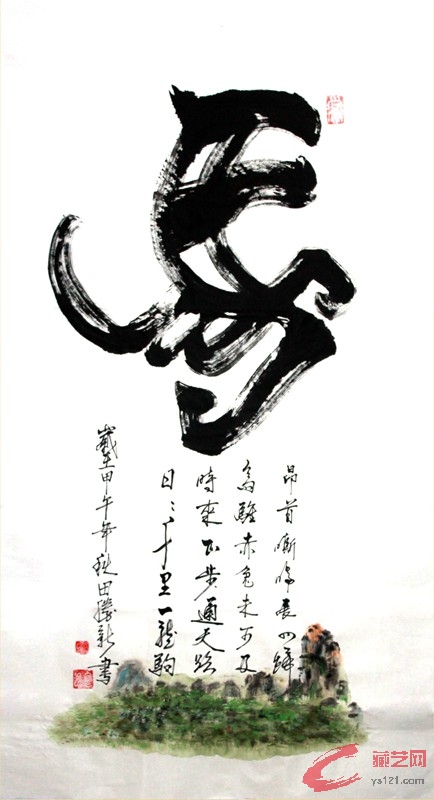 馬
昂首嘶鳴展四蹄
烏騅赤兔未可及
時來正步通天路
日行千里一龍駒
歲在甲午年秋田新書
藏艺网
ys121.com